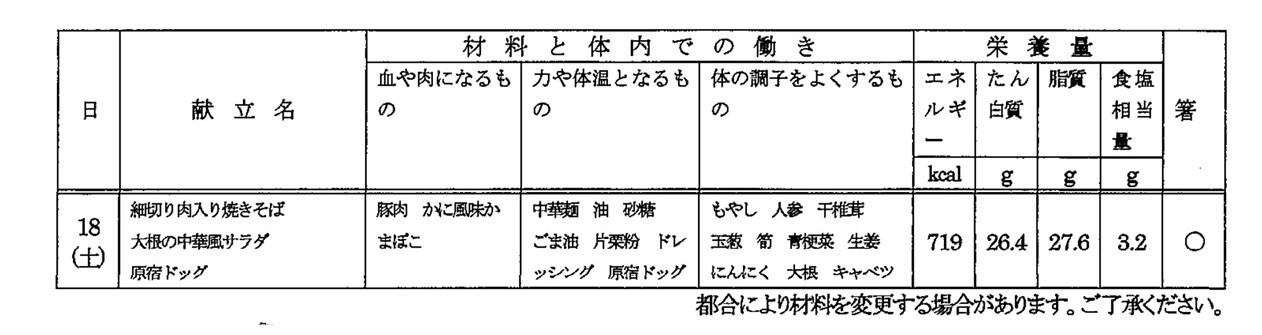 日
献立名
材料と体内での働き
栄養量
箸
血や肉になるもの
力や体温となるもの
体の調子をよくするもの
エネルギー
たん白質
脂質
食塩相当量
kcal
g
g
g
18
(土)
細切り肉入り焼きそば
大根の中華風サラダ
原宿ドッグ
豚肉 かに風味か
まぼこ
中華麺 油 砂糖
ごま油 片栗粉 ドレ
ッシング 原宿ドッグ
もやし 人参 干椎茸
玉葱 筍 青梗菜 生姜
にんにく 大根 キャベツ
719
26.4
27.6
3.2
○
都合により材料を変更する場合があります。ご了承ください。